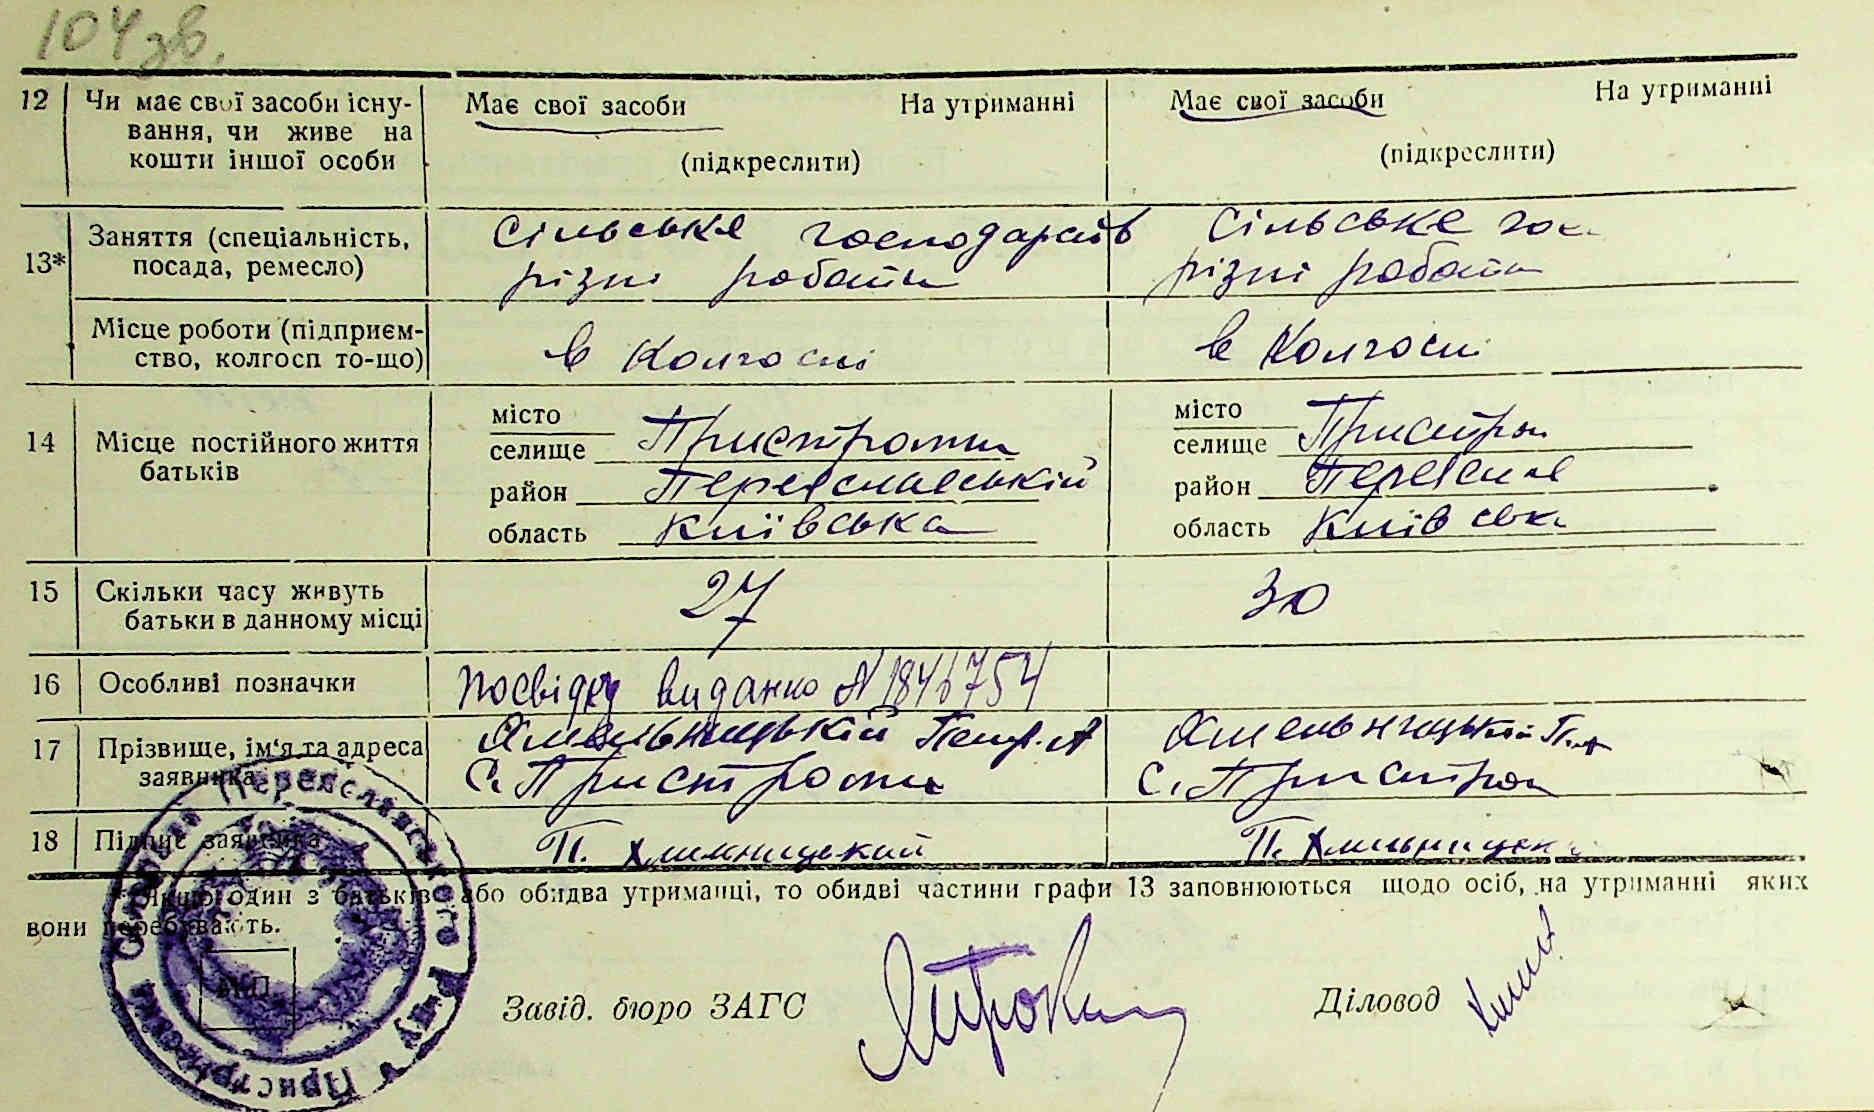 104 зв.
12 Чи має свої засоби існу- Має свої засоби На утриманні Має свої засоби На утриманні
вання, чи живе на
кошти іншої особи (підкреслити) (підкреслити)
13* Заняття (спеціальність, Сільське господарств Сільське гос
посада, ремесло) різні роботи різні роботи
Місце роботи (підприєм- в Колгоспі в Колгосп
ство, колгосп то-що)
14 Місце постійного життя місто місто
батьків селище Пристроми селище Пристром
район Переяславській район Переяслав
область Київська область Київська
15 Скільки часу живуть 27 30
батьки в данному місці
16 Особливі позначки посвідку виданно N 1846754
17 Прізвище, ім'я та адреса Хмельницькій Петр. А Хмельницькій П. А
заявника с. Пристроми с. Пристром
18 Підпис заявника П. Хмилницький П. Хмельницьк
* Якщо один з батьків або обидва утриманці, то обидві частини графи 13 заповнюються щодо осіб, на утриманні яких
вони перебувають.
МП
Завід. бюро ЗАГС Діловод
Переяславського Р-ну